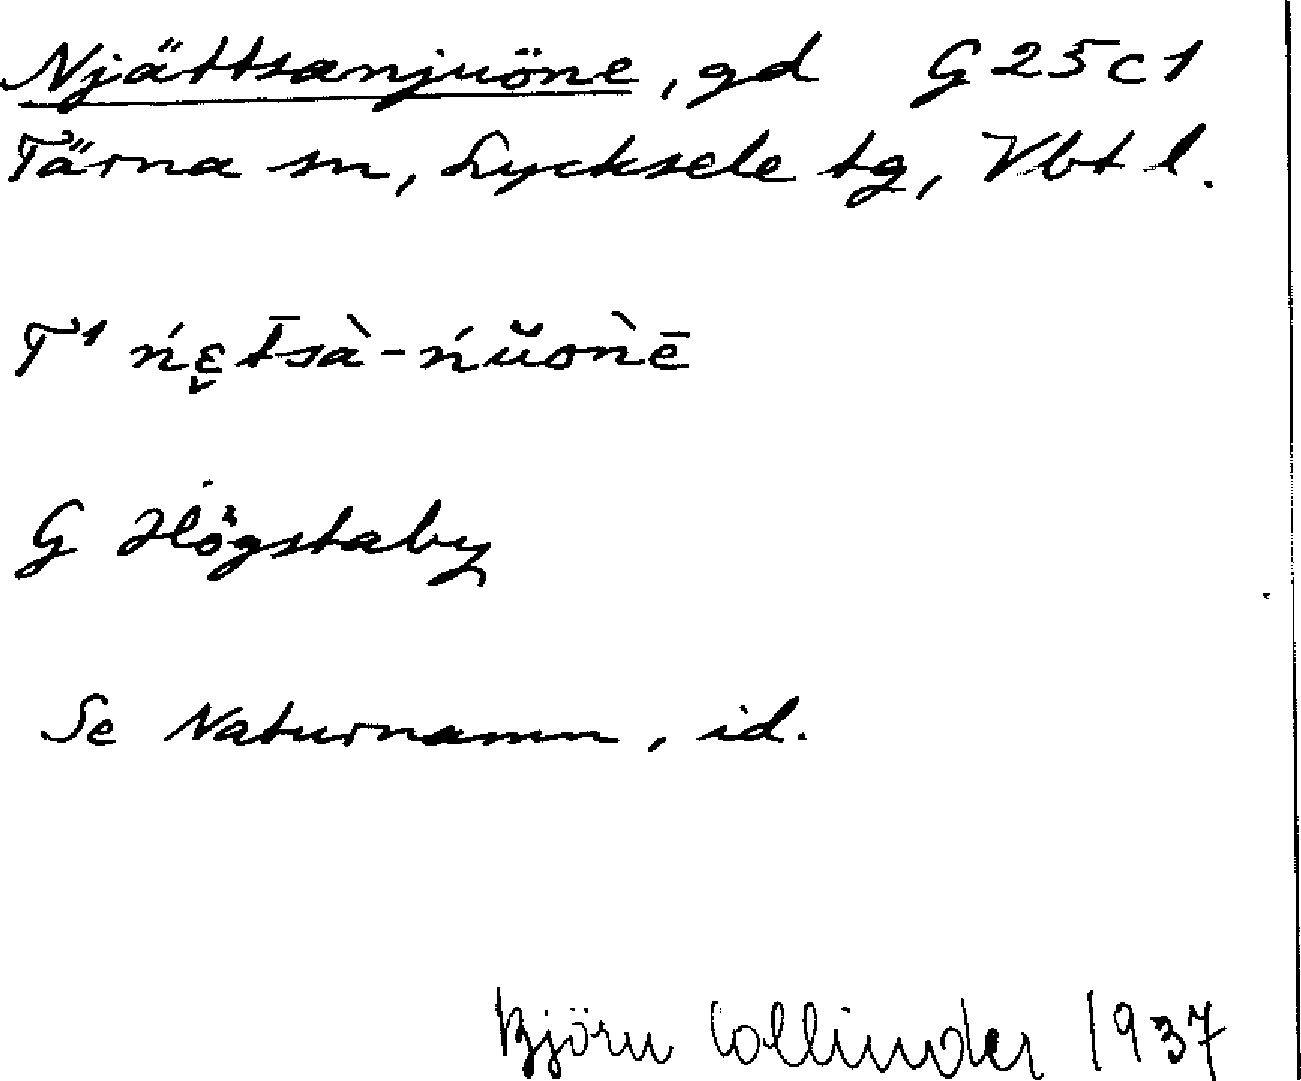 Njättsanjuöne, gd G 25 c 1
Tärna sn, Lycksele tg, Vbt l.
T¹ ńę̬t̄sà-ńŭoǹē
G Högstaby
Se Naturnamn, id.
Björn Collinder 1937